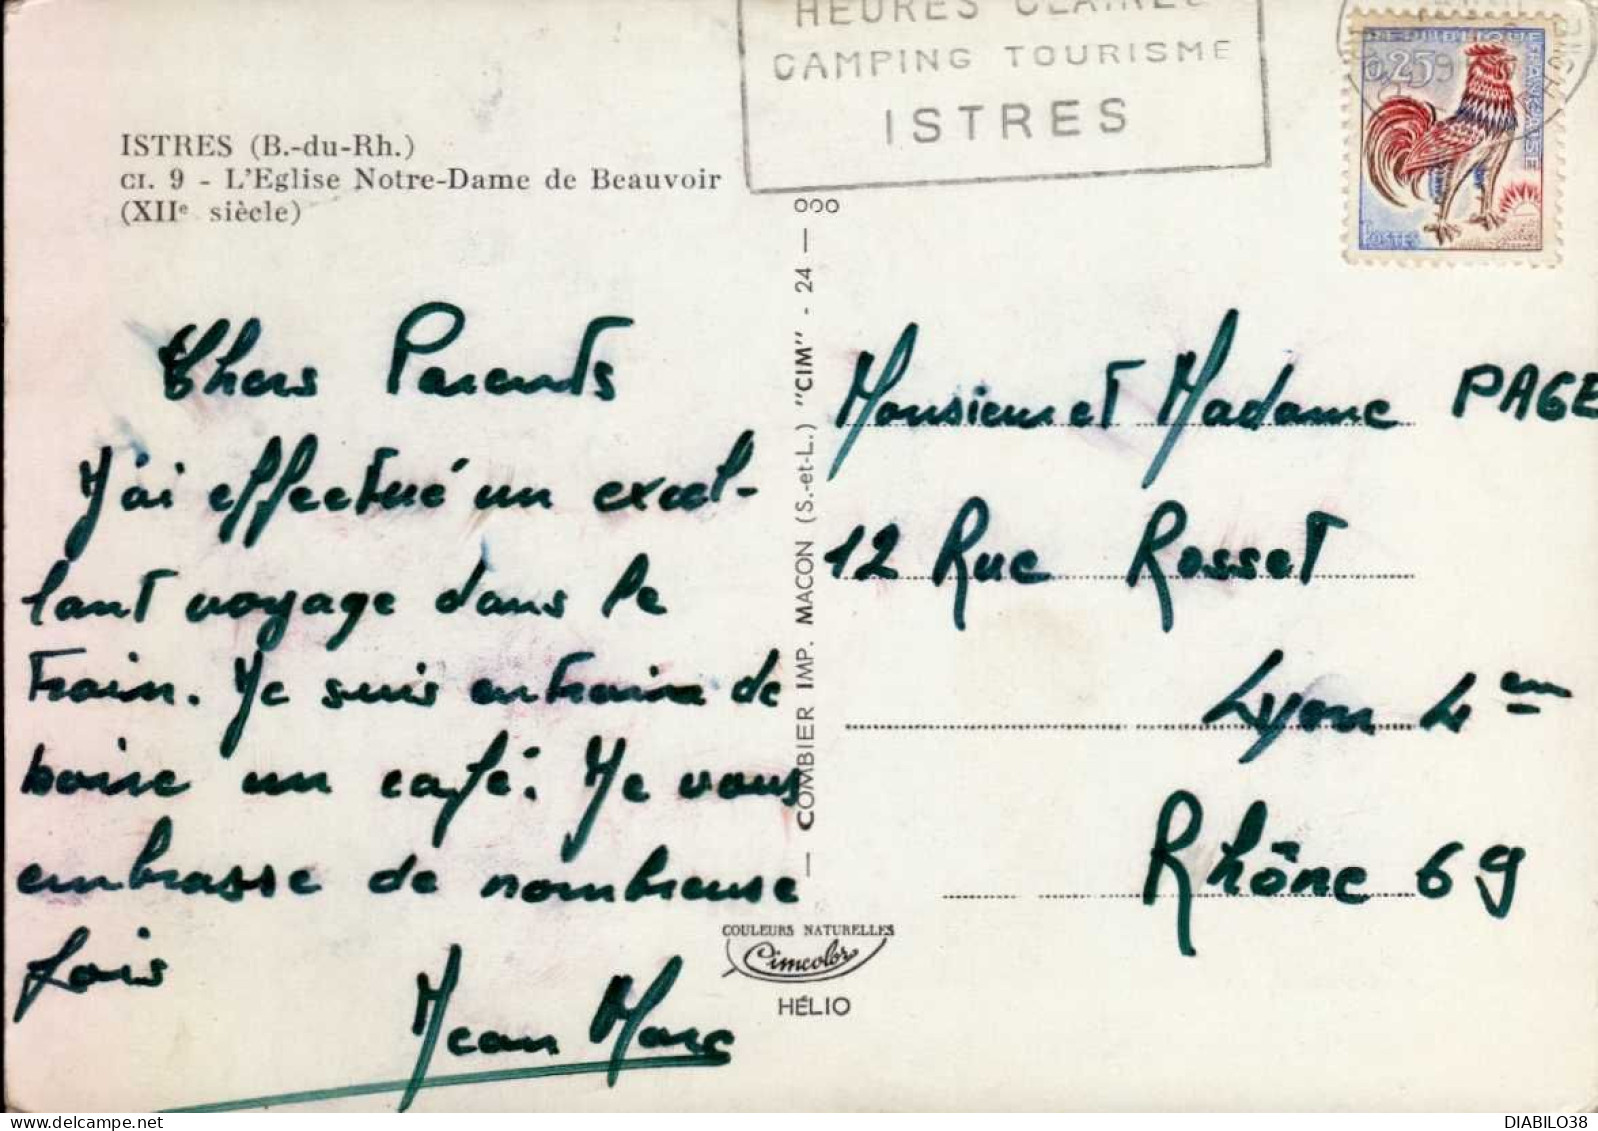 HEURES CLAIRES
CAMPING TOURISME
ISTRES
REPUBLIQUE FRANÇAISE
0,25
POSTES
ISTRES (B.-du-Rh.)
CI. 9 - L'Eglise Notre-Dame de Beauvoir
(XIIe siècle)
Chers Parents
J'ai effectué un excel-
lant voyage dans le
train. Je suis entraine de
boire un café. Je vous
embrasse de nombreuse
fois
Jean Marc
COMBIER IMP. MACON (S.-et-L.) "CIM" - 24 -
COULEURS NATURELLES
Cimcolor
HÉLIO
Monsieur et Madame PAGE
12 Rue Rosset
Lyon 4em
Rhône 69
DIABILO38